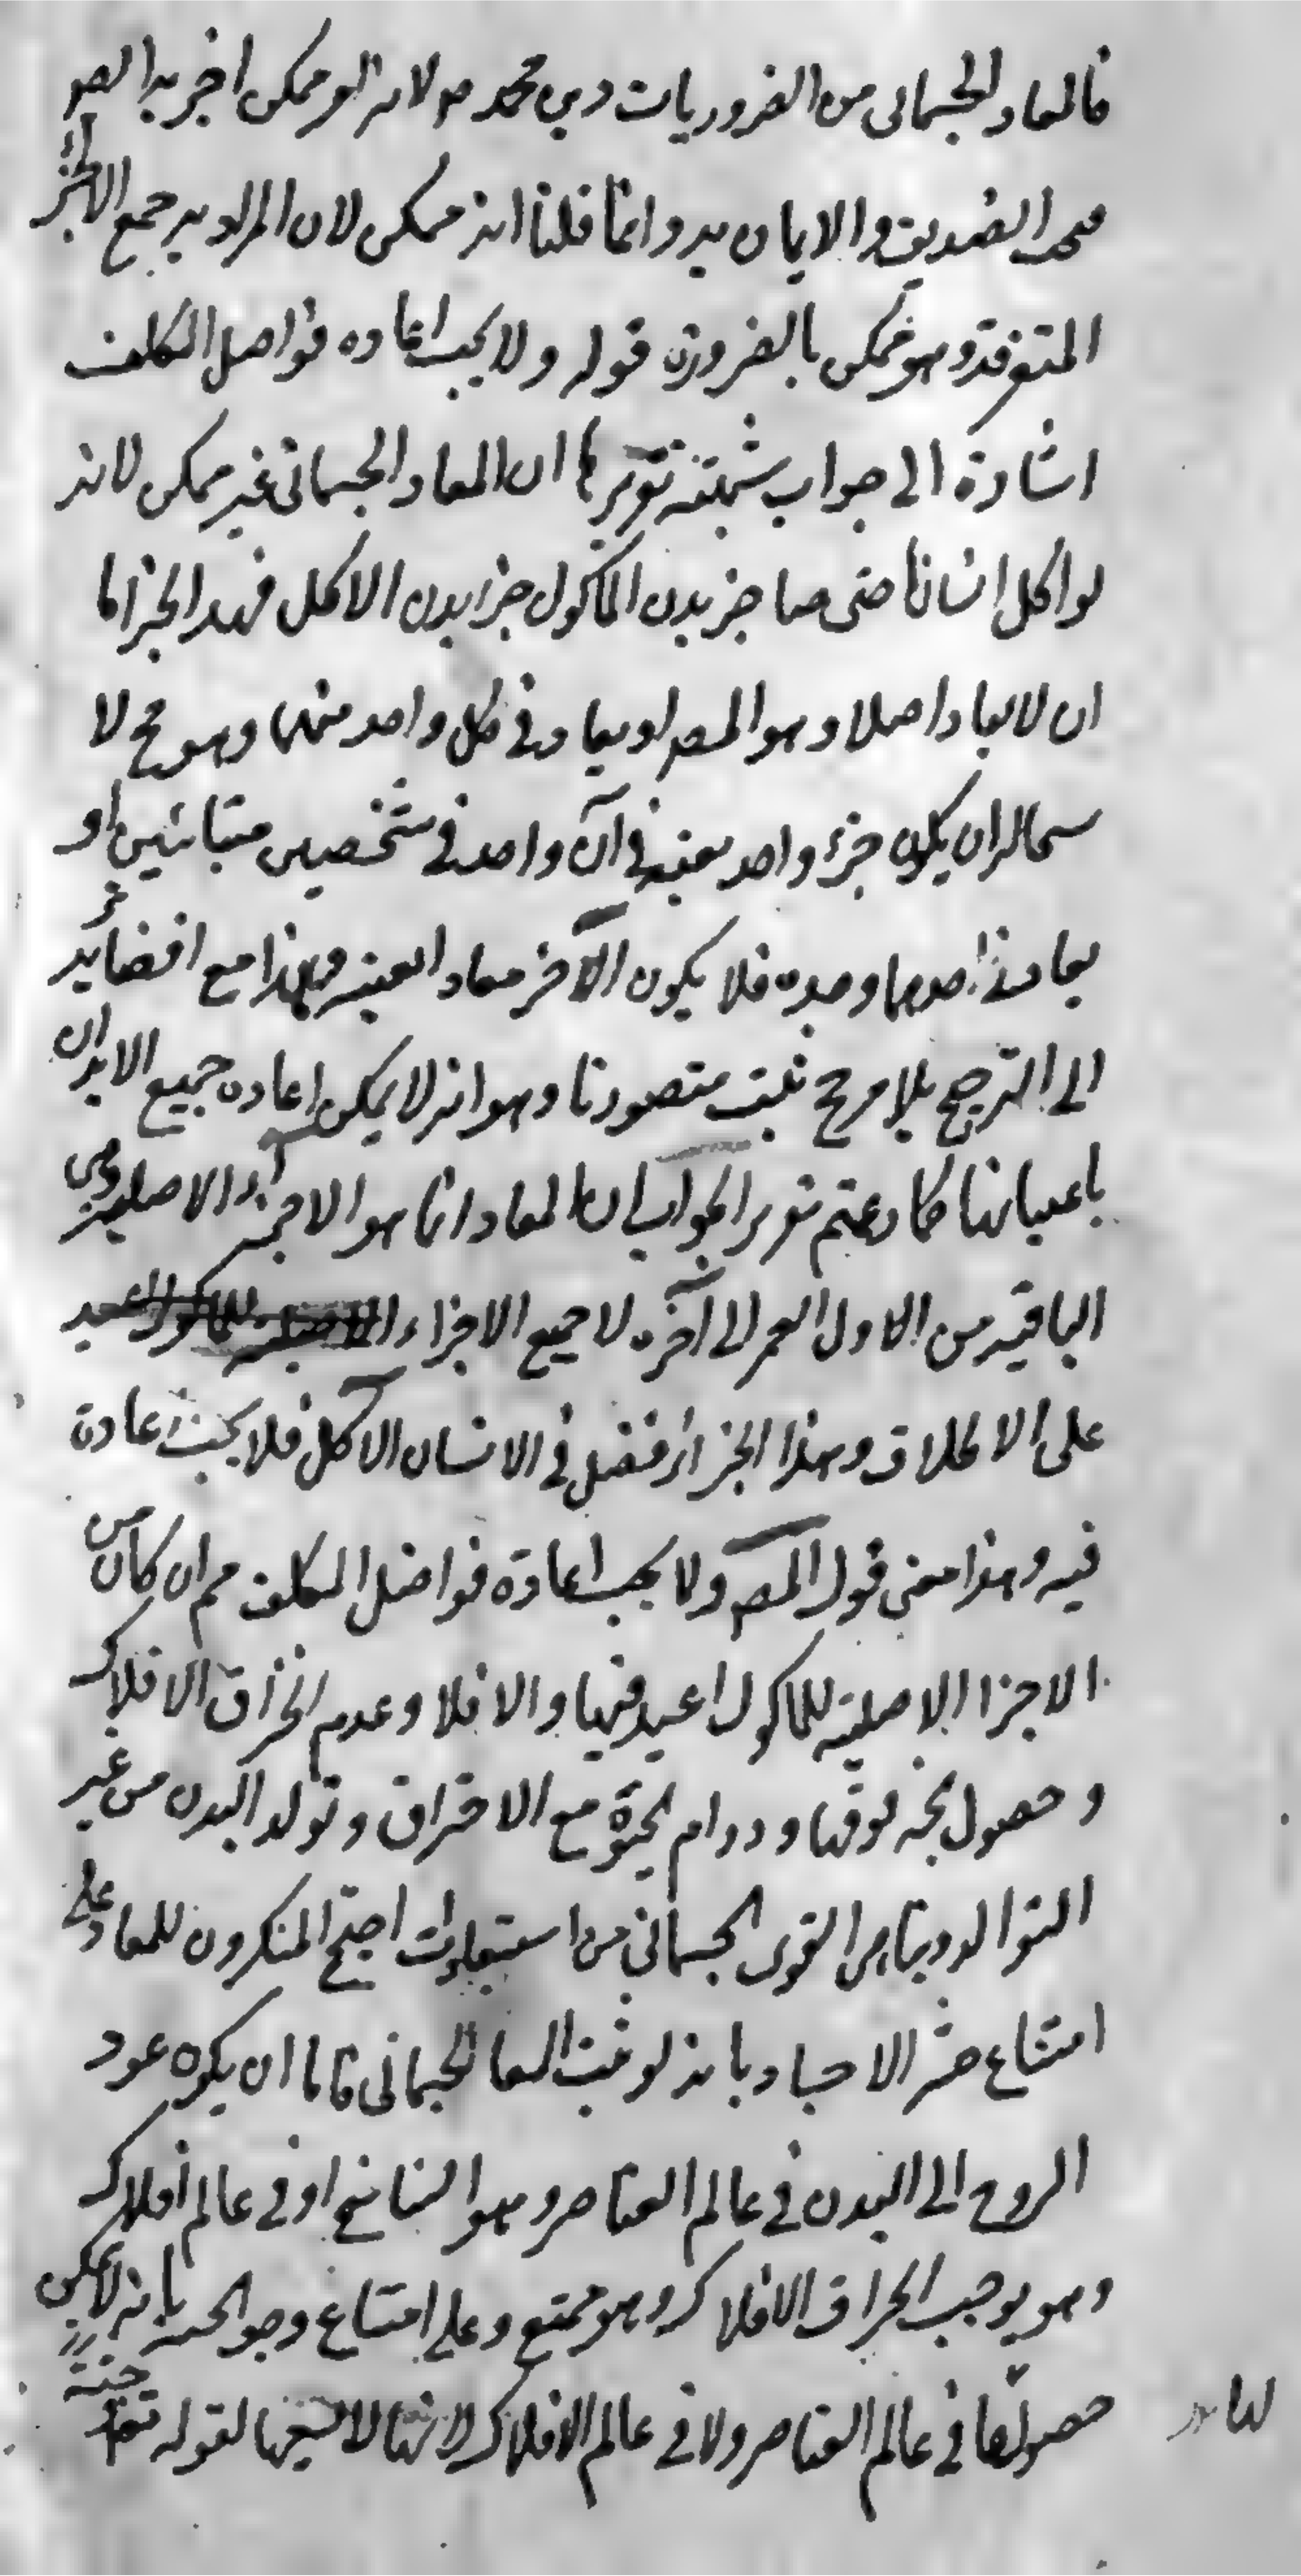 فالمعاد الجسمانى من الضروريات دين محمد صم لانه امر ممكن اخبر به الصو
فيجب التصديق والايمان به وانما قلنا انه ممكن لان المراد به جمع الاجزاء
المتفرقة وهو ممكن بالضرورة قوله ولا يجب اعاده فواضل المكلف
اشارة الى جواب شبهته تقريرها ان المعاد الجسمانى غير ممكن لانه
لو اكل انسانا حتى صا جز بدن الماكول جزا بدن الاكل فهذا الجز اما
ان لا يعاد اصلا وهو المط او يعاد فى كل واحد منهما وهو مح لا
ستحالة ان يكون جزء واحد بعينه فى آن واحد فى شخصين متباينين او
يعاد فى احدهما وحده فلا يكون الآخر معادا بعينه وهذا مع افضائه
الى الترجيح بلا مرجح يثبت مقصودنا وهو انه لا يمكن اعاده جميع الابدان
باعيانها كما زعمتم تقرير الجواب ان المعاد انما هو الاجزاء الاصلية وهى
الباقية من الاول العمر الى آخره لا جميع الاجزاء
على الاطلاق وهذا الجز فضل فى الانسان الآكل فلا يجب اعادة
فيه وهذا معنى قول المص ولا يجب اعادة فواضل المكلف ثم ان كان من
الاجزا الاصلية للماكول اعيد فيها والا فلا وعدم انخراق الافلاك
وحصول الجنة فوقها ودوام الحيوة مع الاحتراق وتولد البدن من غير
التوالد وتناهى القوى الجسمانى من استبعادات احتج المنكرون للمعاد على
امتناع حشر الاجساد بانه لو ثبت المعا الجسمانى فاما ان يكون عود
الروح الى البدن فى عالم العناصر وهو التناسخ او فى عالم افلاك
وهو يوجب انخراق الافلاك وهو ممتنع وعلى امتناع وجو الجنة بانه لا يمكن
حصولها فى عالم العناصر ولا فى عالم الافلاك لانها لا تسعها لقوله تعا جنة